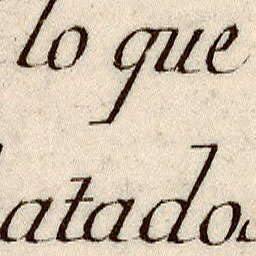 lo que
atados